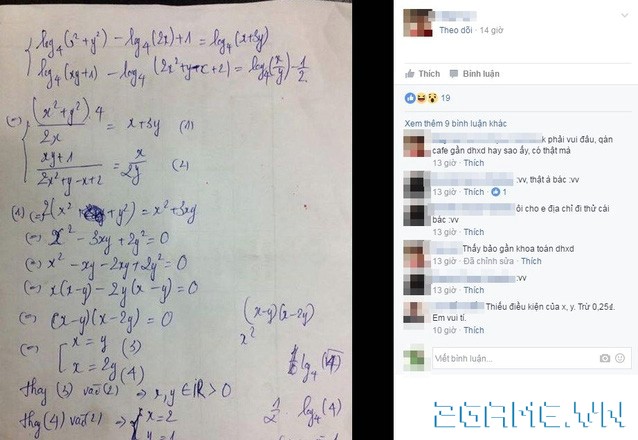 log₄(x²+y²) − log₄(2x)+1 = log₄(x+3y)
log₄(xy+1) − log₄(2x²+y−x+2) = log₄(x/y) − 1/2
(=) (x²+y²).4 / 2x = x+3y (1)
xy+1 / 2x²+y−x+2 = x / 2y (2)
(1) (=) 2(x² + y²) = x²+3xy
(=) x² − 3xy + 2y² = 0
(=) x² − xy − 2xy + 2y² = 0
(=) x(x−y) − 2y(x−y) = 0
(=) (x−y)(x−2y) = 0
(x−y)(x−2y)
x²
(=) [ x = y (3)
x = 2y (4)
log₄(4)
thay (3) vào (2) => x, y ∈ ℝ > 0
1/2 . log₄(4)
thay (4) vào (2) => { x = 2
y = 1
Theo dõi · 14 giờ
Thích Bình luận
19
Xem thêm 9 bình luận khác
k phải vui đâu, qán
cafe gần dhxd hay sao ấy, có thật má
13 giờ · Thích
:vv, thật á bác :vv
13 giờ · Thích · 1
ôi cho e địa chỉ đi thử cái
bác :vv
13 giờ · Thích
Thầy bảo gần khoa toàn dhxd
13 giờ · Đã chỉnh sửa · Thích
:vv
13 giờ · Thích
Thiếu điều kiện của x, y. Trừ 0,25đ.
Em vui tí.
10 giờ · Thích
Viết bình luận...
2GAME.VN